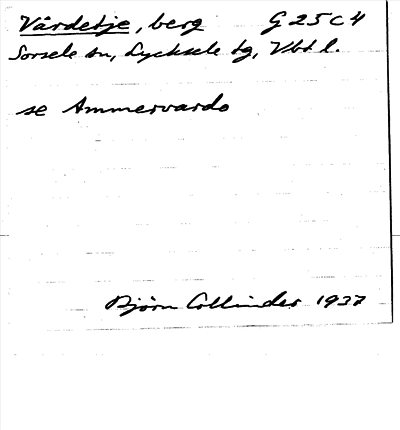 Vårdetje, berg G 25 C 4
Sorsele sn, Lycksele tg, Vbtl.
se Ammervardo
Björn Collinder 1937